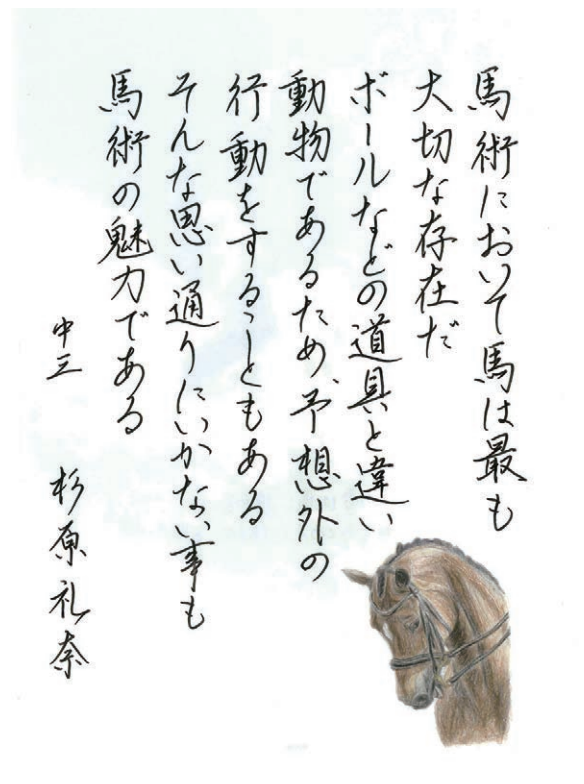 馬術において馬は最も
大切な存在だ
ボールなどの道具と違い
動物であるため、予想外の
行動をすることもある
そんな思い通りにいかない事も
馬術の魅力である
中三 杉原礼奈